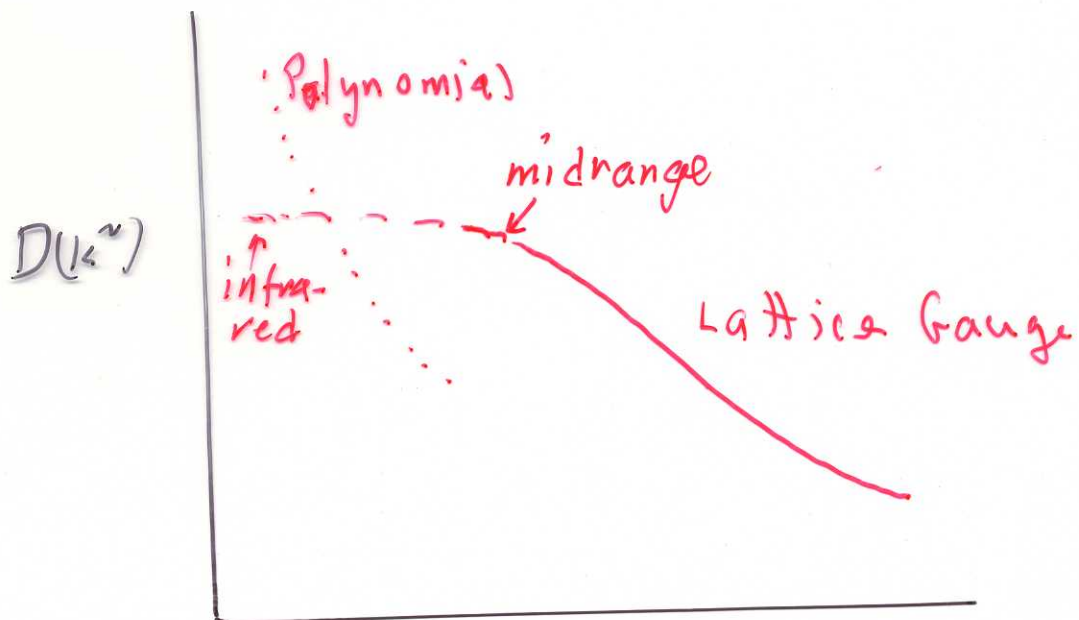 Polynomial
midrange
D(k²)
infra-
red
Lattice Gauge